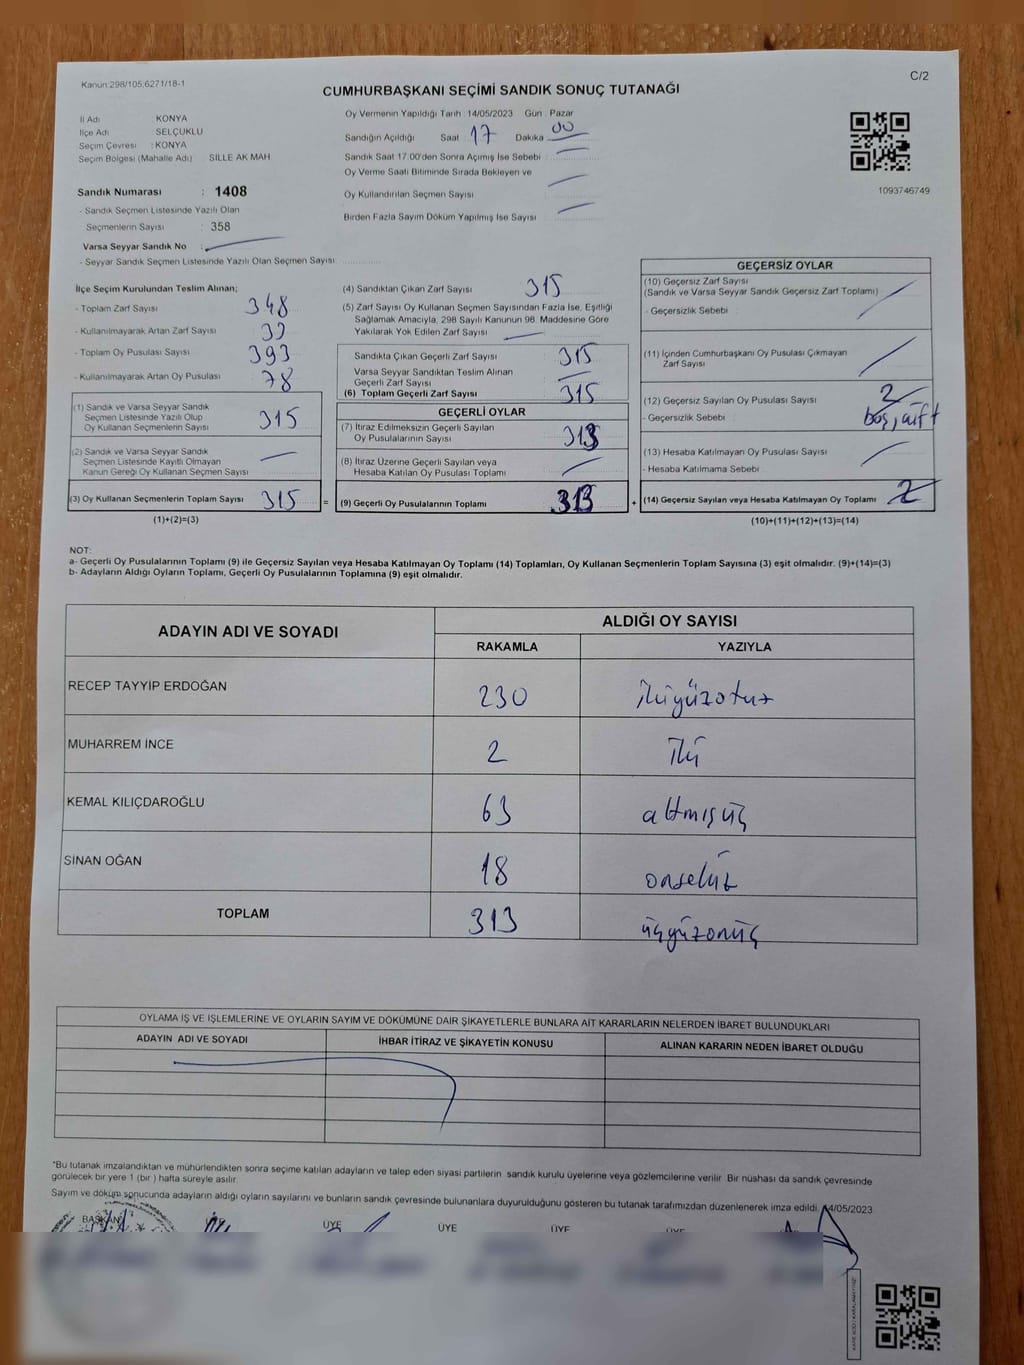 Kanun:298/105;6271/18-1
C/2
CUMHURBAŞKANI SEÇİMİ SANDIK SONUÇ TUTANAĞI
İl Adı KONYA
İlçe Adı SELÇUKLU
Seçim Çevresi : KONYA
Seçim Bölgesi (Mahalle Adı) SİLLE AK MAH
Sandık Numarası : 1408
- Sandık Seçmen Listesinde Yazılı Olan
Seçmenlerin Sayısı : 358
Varsa Seyyar Sandık No :
- Seyyar Sandık Seçmen Listesinde Yazılı Olan Seçmen Sayısı
Oy Vermenin Yapıldığı Tarih :14/05/2023 Gün : Pazar
Sandığın Açıldığı Saat 17 Dakika 00
Sandık Saat 17.00'den Sonra Açımış İse Sebebi :
Oy Verme Saati Bitiminde Sırada Bekleyen ve
Oy Kullandırılan Seçmen Sayısı
Birden Fazla Sayım Döküm Yapılmış İse Sayısı
1093746749
İlçe Seçim Kurulundan Teslim Alınan;
- Toplam Zarf Sayısı 348
- Kullanılmayarak Artan Zarf Sayısı 33
- Toplam Oy Pusulası Sayısı 393
- Kullanılmayarak Artan Oy Pusulası 78
(1) Sandık ve Varsa Seyyar Sandık
Seçmen Listesinde Yazılı Olup
Oy Kullanan Seçmenlerin Sayısı 315
(2) Sandık ve Varsa Seyyar Sandık
Seçmen Listesinde Kayıtlı Olmayan
Kanun Gereği Oy Kullanan Seçmen Sayısı
(3) Oy Kullanan Seçmenlerin Toplam Sayısı 315 =
(1)+(2)=(3)
(4) Sandıktan Çıkan Zarf Sayısı 315
(5) Zarf Sayısı Oy Kullanan Seçmen Sayısından Fazla İse, Eşitliği
Sağlamak Amacıyla, 298 Sayılı Kanunun 98. Maddesine Göre
Yakılarak Yok Edilen Zarf Sayısı
Sandıkta Çıkan Geçerli Zarf Sayısı 315
Varsa Seyyar Sandıktan Teslim Alınan
Geçerli Zarf Sayısı
(6) Toplam Geçerli Zarf Sayısı 315
GEÇERLİ OYLAR
(7) İtiraz Edilmeksizin Geçerli Sayılan
Oy Pusulalarının Sayısı 313
(8) İtiraz Üzerine Geçerli Sayılan veya
Hesaba Katılan Oy Pusulası Toplamı
(9) Geçerli Oy Pusulalarının Toplamı 313 +
GEÇERSİZ OYLAR
(10) Geçersiz Zarf Sayısı
(Sandık ve Varsa Seyyar Sandık Geçersiz Zarf Toplamı)
- Geçersizlik Sebebi
(11) İçinden Cumhurbaşkanı Oy Pusulası Çıkmayan
Zarf Sayısı
(12) Geçersiz Sayılan Oy Pusulası Sayısı 2
- Geçersizlik Sebebi boş, çift
(13) Hesaba Katılmayan Oy Pusulası Sayısı
- Hesaba Katılmama Sebebi
(14) Geçersiz Sayılan veya Hesaba Katılmayan Oy Toplamı 2
(10)+(11)+(12)+(13)=(14)
NOT:
a- Geçerli Oy Pusulalarının Toplamı (9) ile Geçersiz Sayılan veya Hesaba Katılmayan Oy Toplamı (14) Toplamları, Oy Kullanan Seçmenlerin Toplam Sayısına (3) eşit olmalıdır. (9)+(14)=(3)
b- Adayların Aldığı Oyların Toplamı, Geçerli Oy Pusulalarının Toplamına (9) eşit olmalıdır.
ADAYIN ADI VE SOYADI ALDIĞI OY SAYISI
RAKAMLA YAZIYLA
RECEP TAYYİP ERDOĞAN 230 ikiyüzotuz
MUHARREM İNCE 2 iki
KEMAL KILIÇDAROĞLU 63 altmışüç
SİNAN OĞAN 18 onsekiz
TOPLAM 313 üçyüzonüç
OYLAMA İŞ VE İŞLEMLERİNE VE OYLARIN SAYIM VE DÖKÜMÜNE DAİR ŞİKAYETLERLE BUNLARA AİT KARARLARIN NELERDEN İBARET BULUNDUKLARI
ADAYIN ADI VE SOYADI İHBAR İTİRAZ VE ŞİKAYETİN KONUSU ALINAN KARARIN NEDEN İBARET OLDUĞU
*Bu tutanak imzalandıktan ve mühürlendikten sonra seçime katılan adayların ve talep eden siyasi partilerin sandık kurulu üyelerine veya gözlemcilerine verilir. Bir nüshası da sandık çevresinde
görülecek bir yere 1 (bir) hafta süreyle asılır.
Sayım ve döküm sonucunda adayların aldığı oyların sayılarını ve bunların sandık çevresinde bulunanlara duyurulduğunu gösteren bu tutanak tarafımızdan düzenlenerek imza edildi. 14/05/2023
BAŞKAN ÜYE ÜYE ÜYE ÜYE